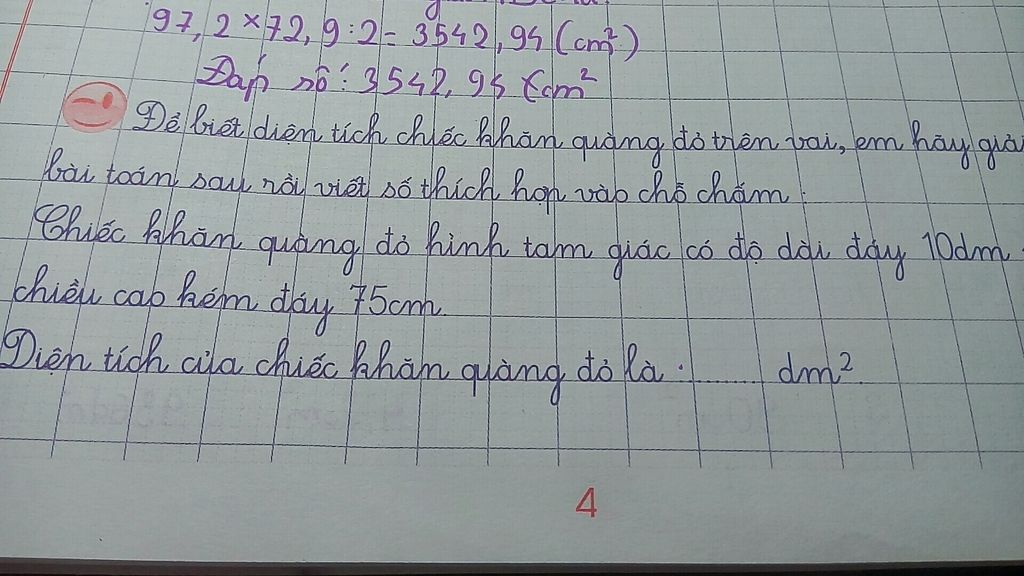 97,2 × 72,9 : 2 = 3542,94 (cm²)
Đáp số : 3542,94 cm²
Để biết diện tích chiếc khăn quàng đỏ trên vai, em hãy giải
bài toán sau rồi viết số thích hợp vào chỗ chấm :
Chiếc khăn quàng đỏ hình tam giác có độ dài đáy 10dm
chiều cao kém đáy 75cm
Diện tích của chiếc khăn quàng đỏ là : ........ dm²
4